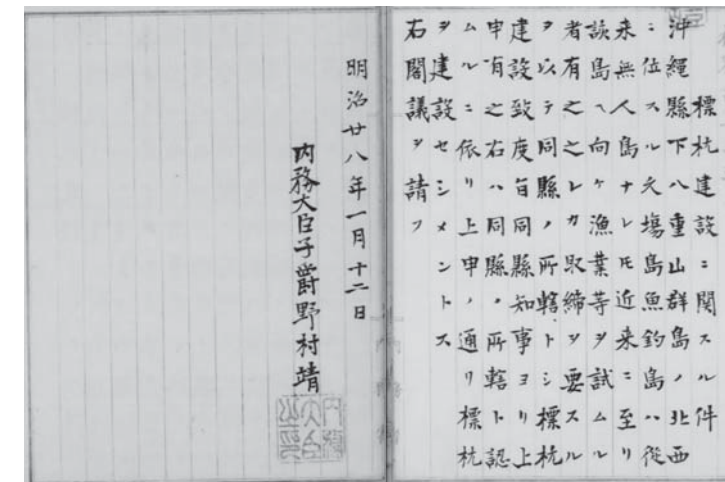 標杭建設ニ関スル件
沖縄縣下八重山群島ノ北西
ニ位スル久塲島魚釣島ハ従
来無人島ナレ𪜈近来ニ至リ
該島ヘ向ケ漁業等ヲ試ムル
者有之之レカ取締ヲ要スル
ヲ以テ同縣ノ所轄トシ標杭
建設致度旨同縣知事ヨリ上
申有之右ハ同縣ノ所轄ト認
ムルニ依リ上申ノ通リ標杭
ヲ建設セシメントス
右閣議ヲ請フ
明治廿八年一月十二日
内務大臣子爵野村靖
内務大臣之印